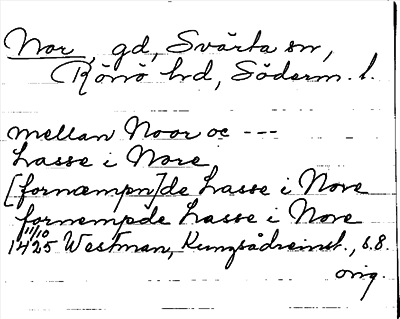 Nor, gd, Svärta sn,
Rönö hd, Söderm. l.
mellan Noor oc ---
Lasse i Nore
[fornæmpn]de Lasse i Nore
fornempde Lasse i Nore
11/10
1425 Westman, s. 8.
orig.